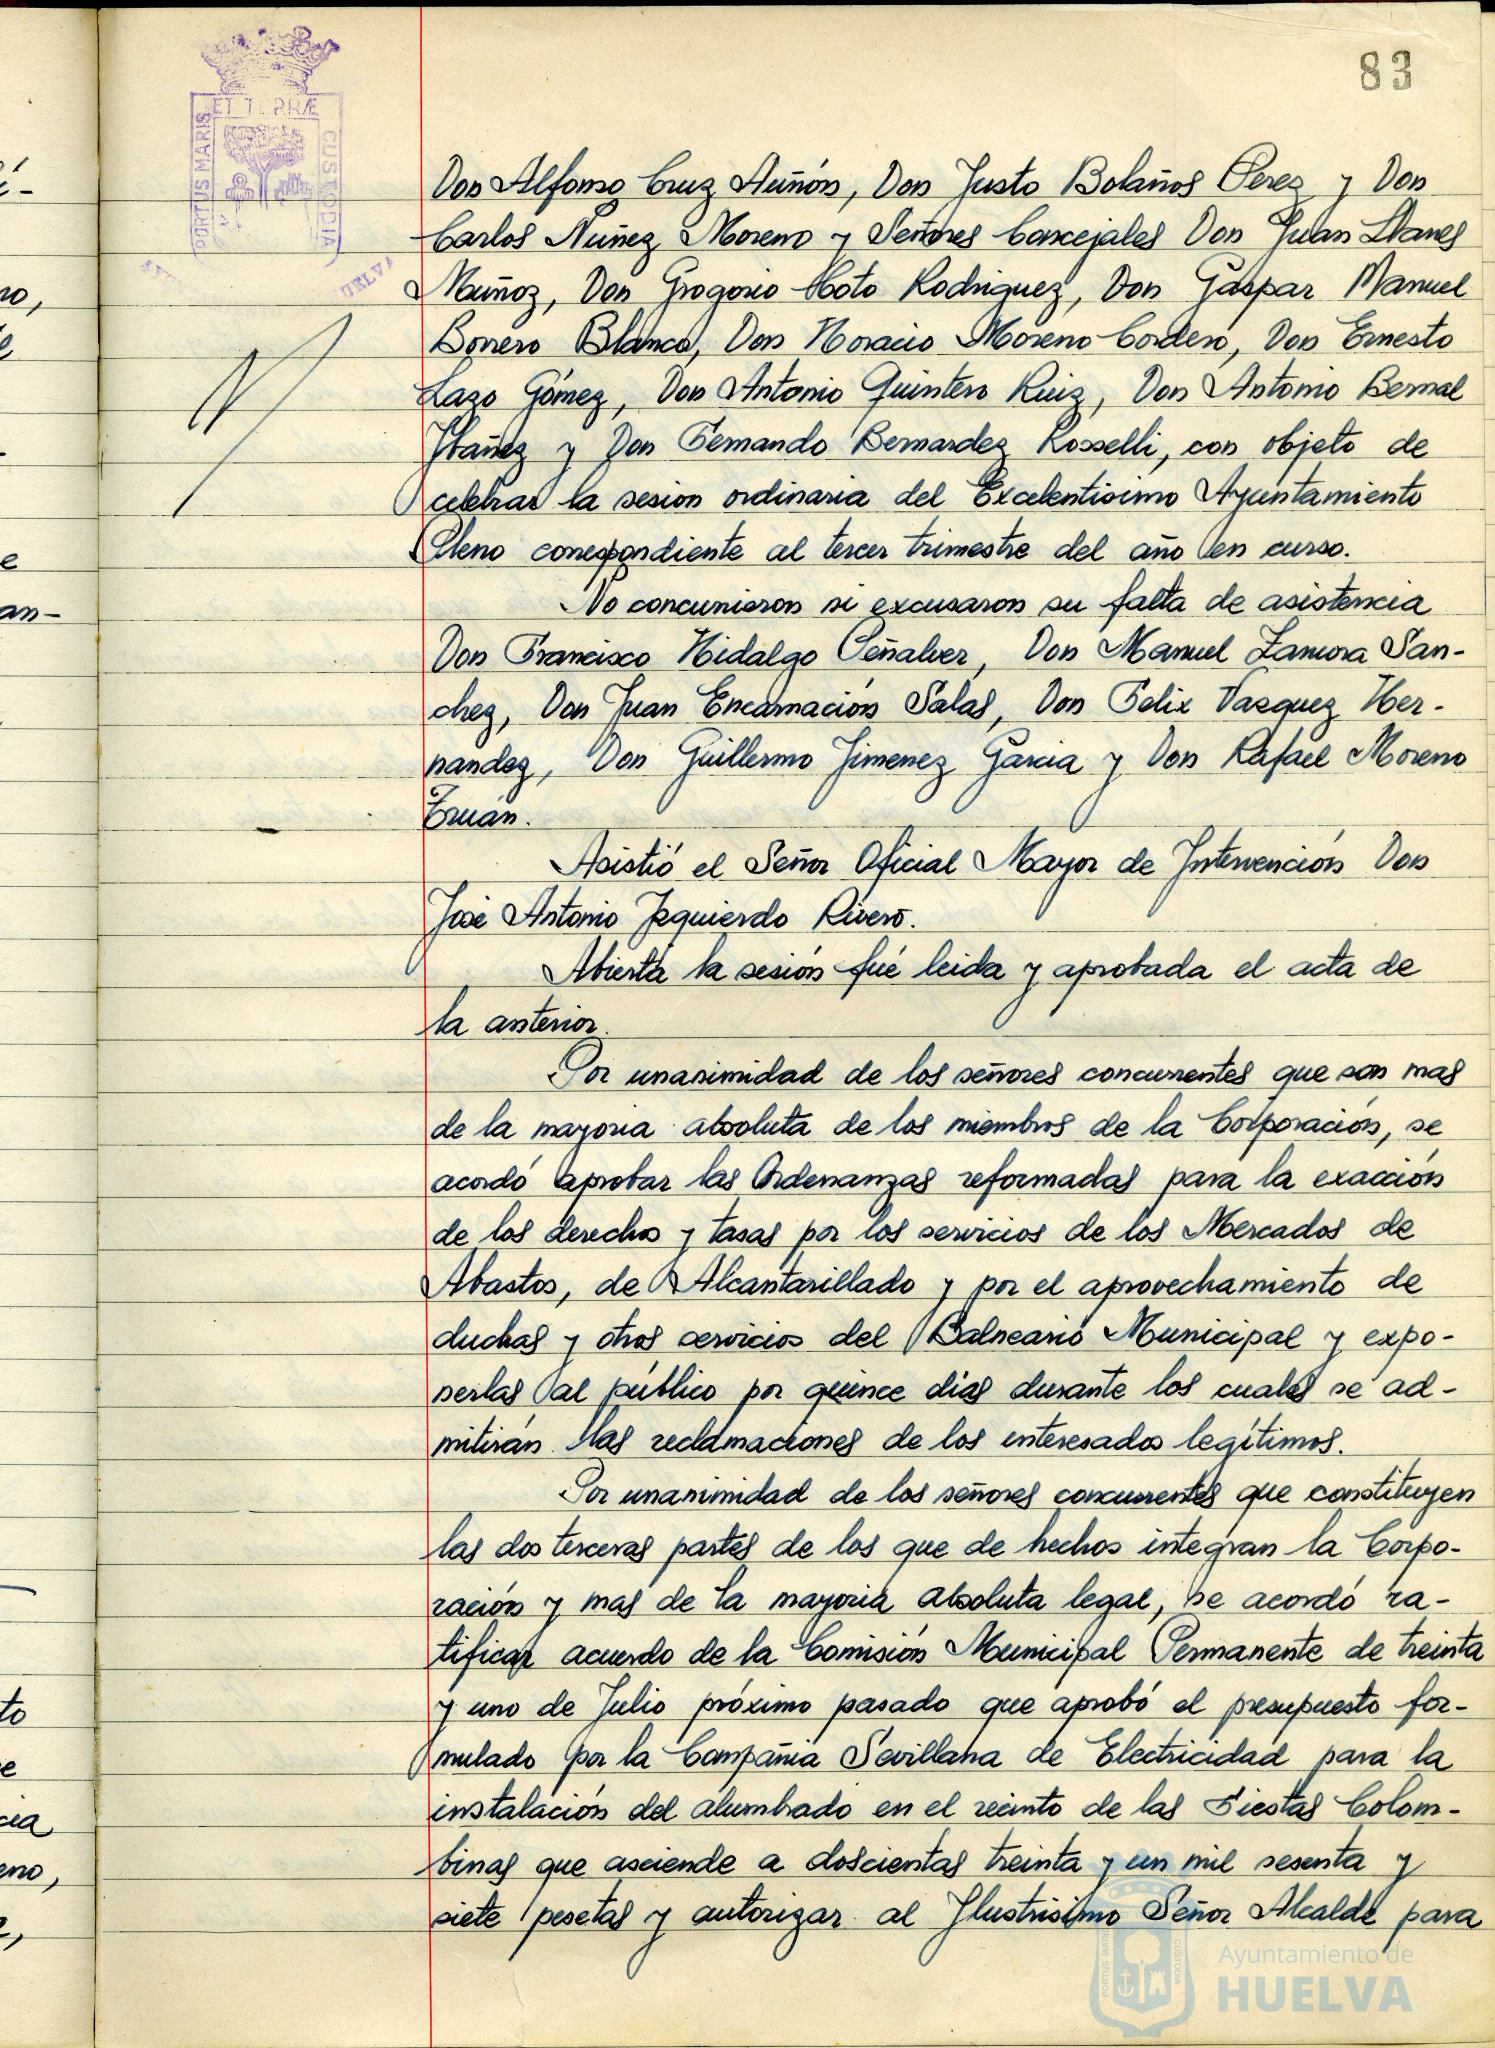 83
ET TERRÆ
PORTUS MARIS
CUSTODIA
HUELVA
Don Alfonso Cruz Auñón, Don Justo Bolaños Perez y Don
Carlos Nuñez Moreno y Señores Concejales Don Juan Llanes
Muñoz, Don Grogorio Soto Rodriguez, Don Gaspar Manuel
Borrero Blanco, Don Horacio Moreno Cordero, Don Ernesto
Lazo Gómez, Don Antonio Quintero Ruiz, Don Antonio Bernal
Ibañez y Don Fernando Bernardez Rosselli, con objeto de
celebrar la sesion ordinaria del Excelentisimo Ayuntamiento
Pleno correspondiente al tercer trimestre del año en curso.
No concurrieron ni excusaron su falta de asistencia
Don Francisco Hidalgo Peñalver, Don Manuel Zamora San-
chez, Don Juan Encarnación Salas, Don Felix Vazquez Her-
nandez, Don Guillermo Jimenez Garcia y Don Rafael Moreno
Asistió el Señor Oficial Mayor de Intervención Don
José Antonio Izquierdo Rivero.
Abierta la sesión fué leida y aprobada el acta de
la anterior.
Por unanimidad de los señores concurrentes que son mas
de la mayoria absoluta de los miembros de la Corporación, se
acordó aprobar las Ordenanzas reformadas para la exacción
de los derechos y tasas por los servicios de los Mercados de
Abastos, de Alcantarillado y por el aprovechamiento de
duchas y otros servicios del Balneario Municipal y expo-
nerlas al público por quince dias durante los cuales se ad-
mitirán las reclamaciones de los interesados legítimos.
Por unanimidad de los señores concurrentes que constituyen
las dos terceras partes de los que de hechos integran la Corpo-
ración y mas de la mayoria absoluta legal, se acordó ra-
tificar acuerdo de la Comisión Municipal Permanente de treinta
y uno de Julio próximo pasado que aprobó el presupuesto for-
mulado por la Compañia Sevillana de Electricidad para la
instalación del alumbrado en el recinto de las Fiestas Colom-
binas que asciende a doscientas treinta y un mil sesenta y
siete pesetas y autorizar al Ilustrisimo Señor Alcalde para
Ayuntamiento de
HUELVA